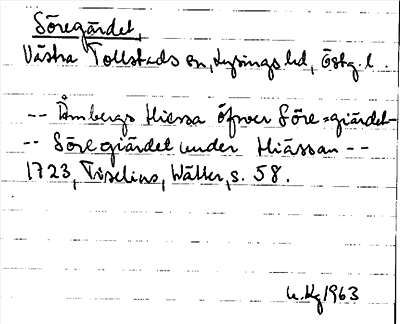 Söregärdet,
Västra Tollstads sn, Lysings hd, Östg. l.
-- Åmbergs Hiessa öfwer Söre=giärdet-
-- Söregiärdet under Hiässan --
1723, Tiselius, Wätter, s. 58.
U. Kg 1963